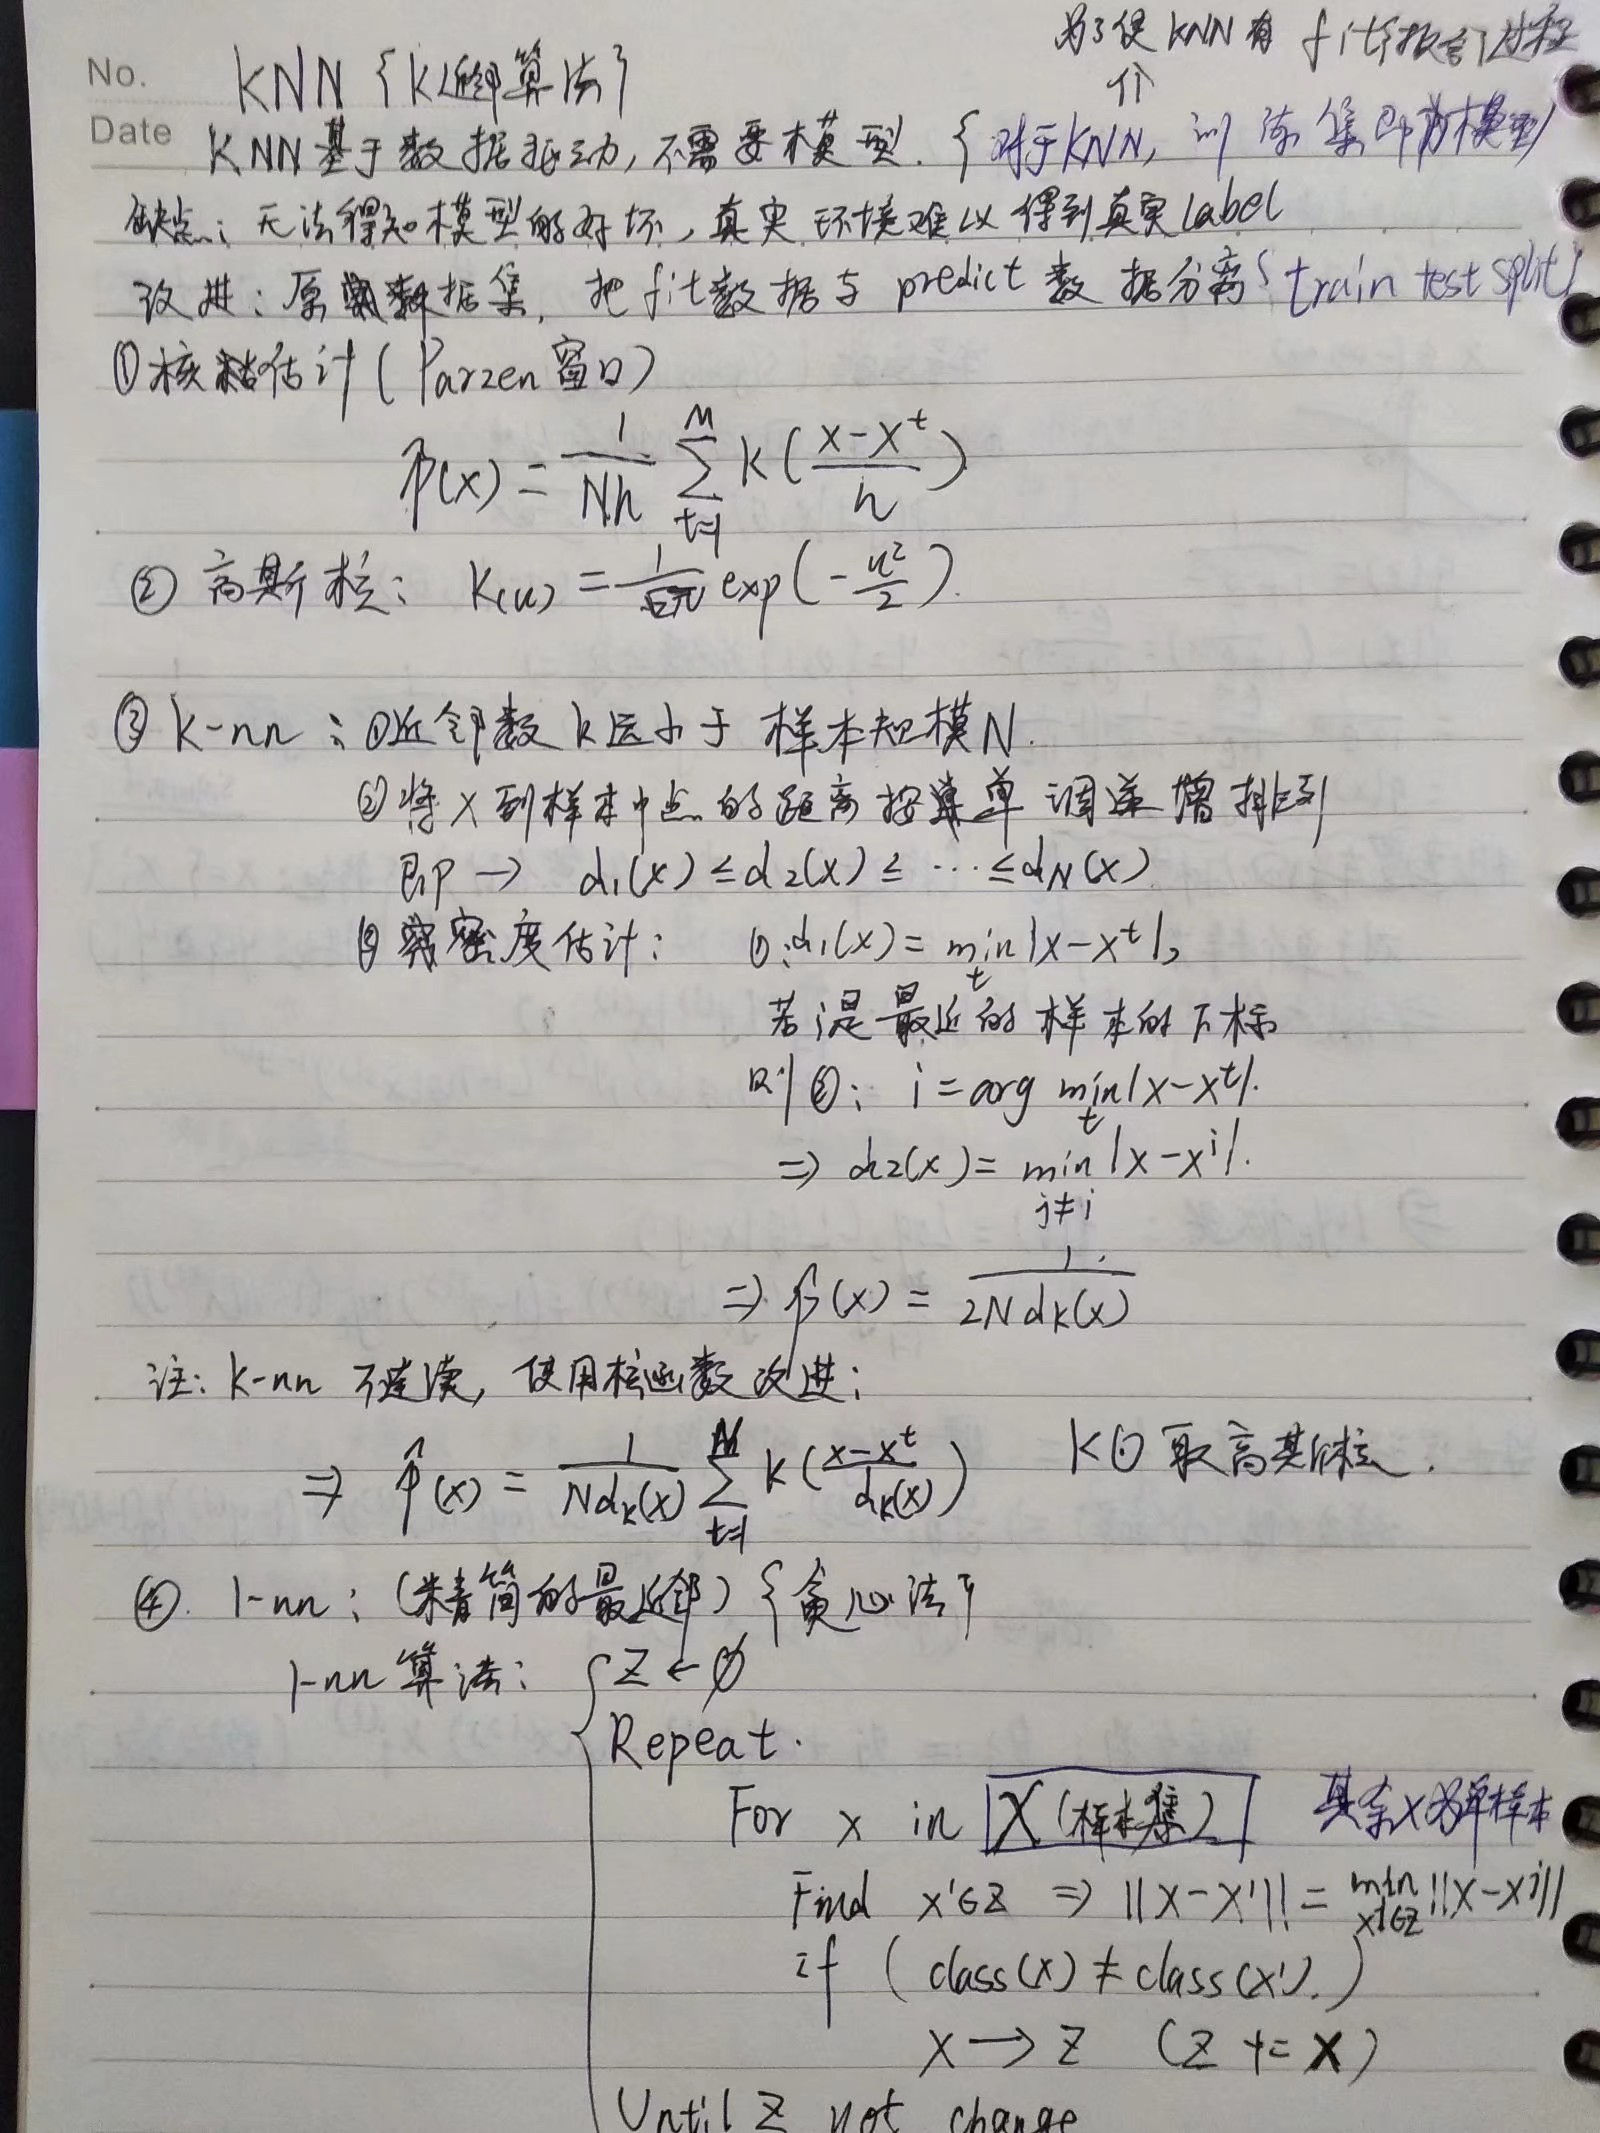 为了使KNN有 fit{拟合}过程
No.
KNN {K近邻算法}
Date
KNN基于数据驱动,不需要模型. {对于KNN, 训练集即为模型}
缺点: 无法得知模型的好坏, 真实环境难以得到真实Label
改进: 原数据集, 把fit数据与predict数据分离{train test split}
① 核估计(Parzen窗口)
p̂(x) = 1/(Nh) Σ_{t=1}^{N} K((x-x^t)/h)
② 高斯核: K(u) = 1/√2π exp(-u²/2).
③ k-nn: ①近邻数k远小于样本规模N.
②将x到样本中点的距离按单调递增排列
即 → d₁(x) ≤ d₂(x) ≤ … ≤ d_N(x)
③ 密度估计: ①: d₁(x) = min_t |x-x^t|,
若i是最近的样本的下标
则②: i = arg min_t |x-x^t|.
⇒ d₂(x) = min_{j≠i} |x-x^j|.
⇒ p̂(x) = 1/(2N d_k(x))
注: k-nn 不连续, 使用核函数改进:
⇒ p̂(x) = 1/(N d_k(x)) Σ_{t=1}^{N} K((x-x^t)/d_k(x)) K(·)取高斯核.
④. 1-nn: (精简的最近邻) {贪心法}
1-nn算法: { Z ← ∅
Repeat.
For x in X(样本集) 其余x为单样本
Find x'∈Z ⇒ ||x-x'|| = min_{x^j∈Z} ||x-x^j||
if (class(x) ≠ class(x').)
x → Z (Z += x)
Until Z not change